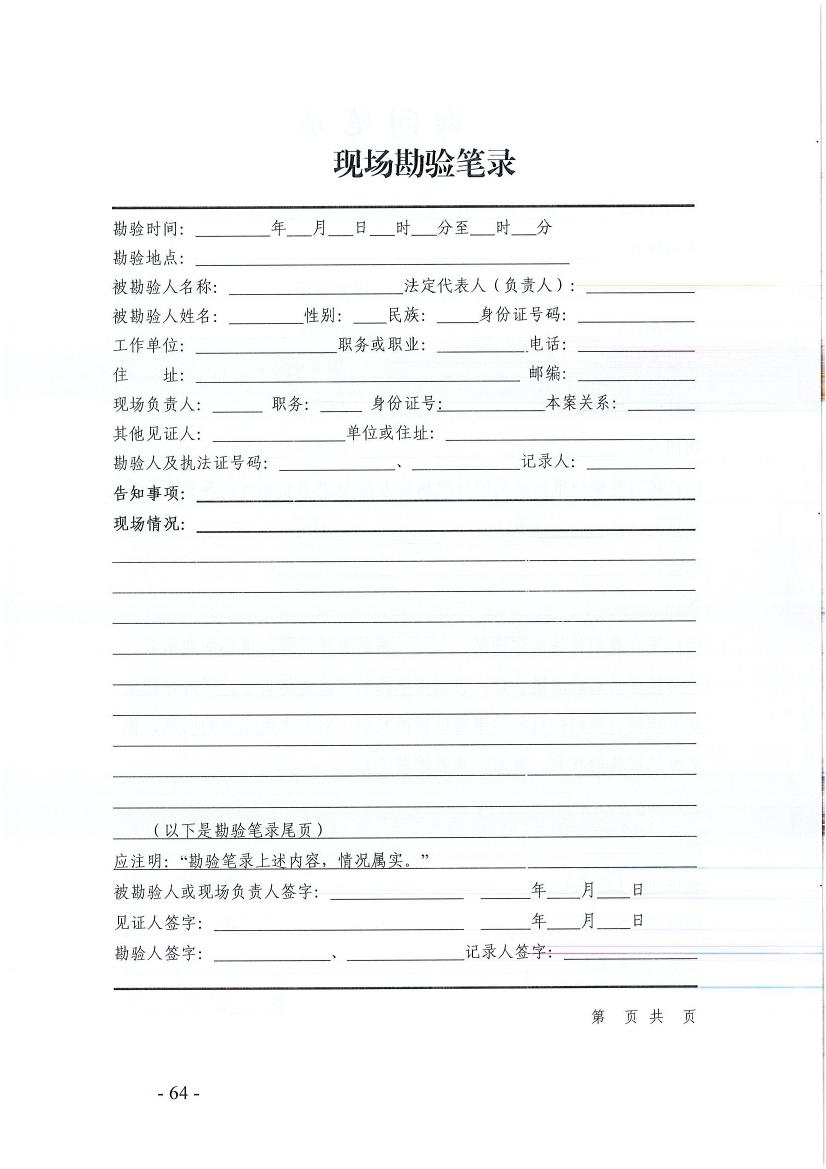 现场勘验笔录
勘验时间：________年___月___日___时___分至___时___分
勘验地点：________________
被勘验人名称：________________法定代表人（负责人）：____________
被勘验人姓名：________性别：____民族：_____身份证号码：____________
工作单位：______________职务或职业：_________电话：____________
住　　址：________________________________邮编：____________
现场负责人：_____ 职务：____ 身份证号：__________本案关系：_______
其他见证人：_____________单位或住址：________________________
勘验人及执法证号码：____________、___________记录人：___________
告知事项：________________________________
现场情况：________________________________
（以下是勘验笔录尾页）
应注明：“勘验笔录上述内容，情况属实。”
被勘验人或现场负责人签字：_____________ _____年____月____日
见证人签字：_________________________ _____年____月____日
勘验人签字：____________、____________记录人签字：_____________
第　页 共　页
- 64 -